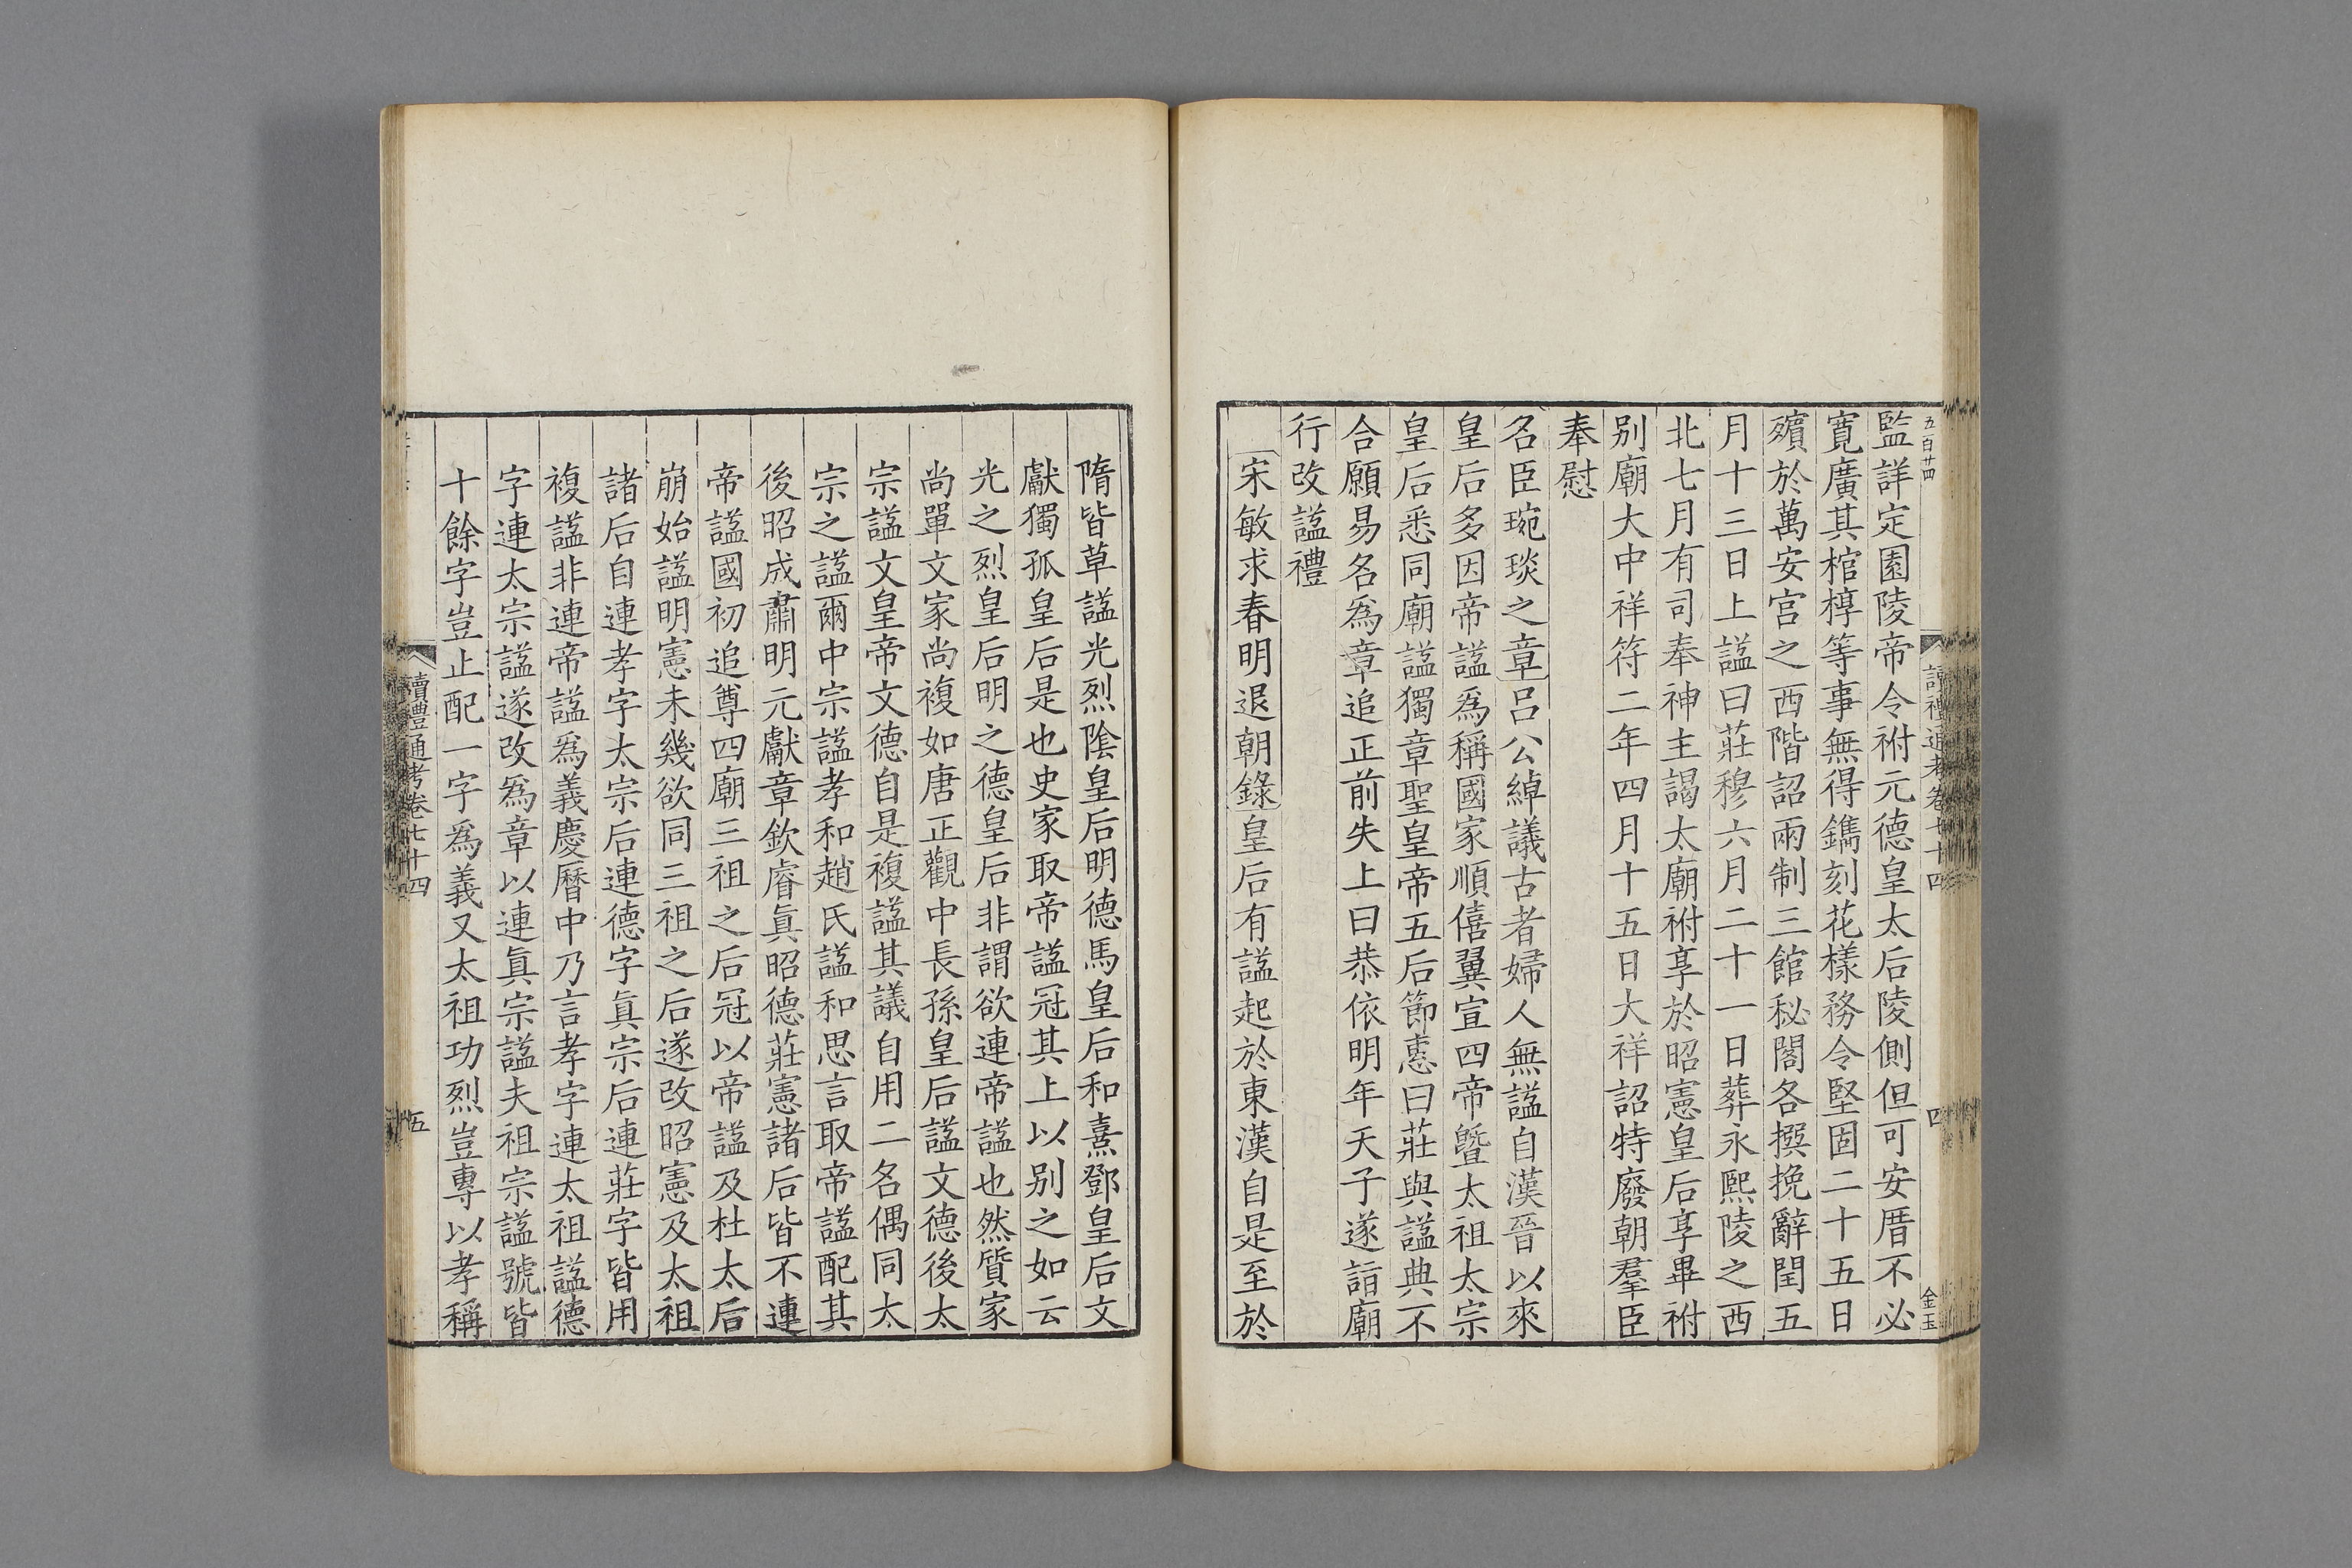 五百廿四
讀禮通考卷七十四
四
金玉
監詳定園陵帝令祔元德皇太后陵側但可安厝不必
寬廣其棺椁等事無得鐫刻花樣務令堅固二十五日
殯於萬安宮之西階詔兩制三館秘閣各撰挽辭閏五
月十三日上諡曰莊穆六月二十一日葬永熙陵之西
北七月有司奉神主謁太廟祔享於昭憲皇后享畢祔
別廟大中祥符二年四月十五日大祥詔特廢朝羣臣
奉慰
名臣琬琰之章呂公綽議古者婦人無諡自漢晉以來
皇后多因帝諡爲稱國家順僖翼宣四帝曁太祖太宗
皇后悉同廟諡獨章聖皇帝五后節惠曰莊與諡典不
合願易名爲章追正前失上曰恭依明年天子遂詣廟
行改諡禮
宋敏求春明退朝錄皇后有諡起於東漢自是至於
隋皆草諡光烈陰皇后明德馬皇后和熹鄧皇后文
獻獨孤皇后是也史家取帝諡冠其上以别之如云
光之烈皇后明之德皇后非謂欲連帝諡也然質家
尚單文家尚複如唐正觀中長孫皇后諡文德後太
宗諡文皇帝文德自是複諡其議自用二名偶同太
宗之諡爾中宗諡孝和趙氏諡和思言取帝諡配其
後昭成肅明元獻章欽睿眞昭德莊憲諸后皆不連
帝諡國初追尊四廟三祖之后冠以帝諡及杜太后
崩始諡明憲未幾欲同三祖之后遂改昭憲及太祖
諸后自連孝字太宗后連德字眞宗后連莊字皆用
複諡非連帝諡爲義慶曆中乃言孝字連太祖諡德
字連太宗諡遂改爲章以連眞宗諡夫祖宗諡號皆
十餘字豈止配一字爲義又太祖功烈豈專以孝稱
讀禮通考卷七十四
五